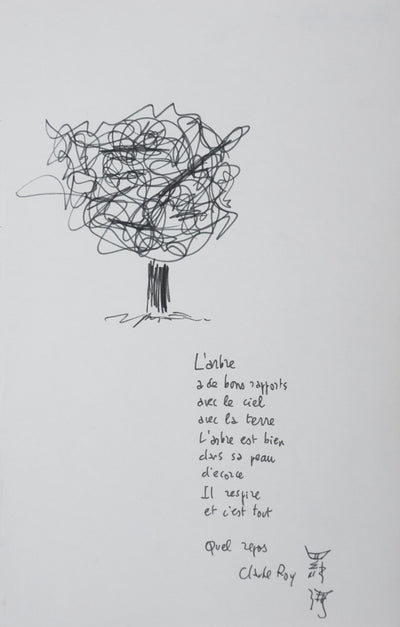 L'arbre
a de bons rapports
avec le ciel
avec la terre
L'arbre est bien
dans sa peau
d'écorce
Il respire
et c'est tout
Quel repos
Claude Roy